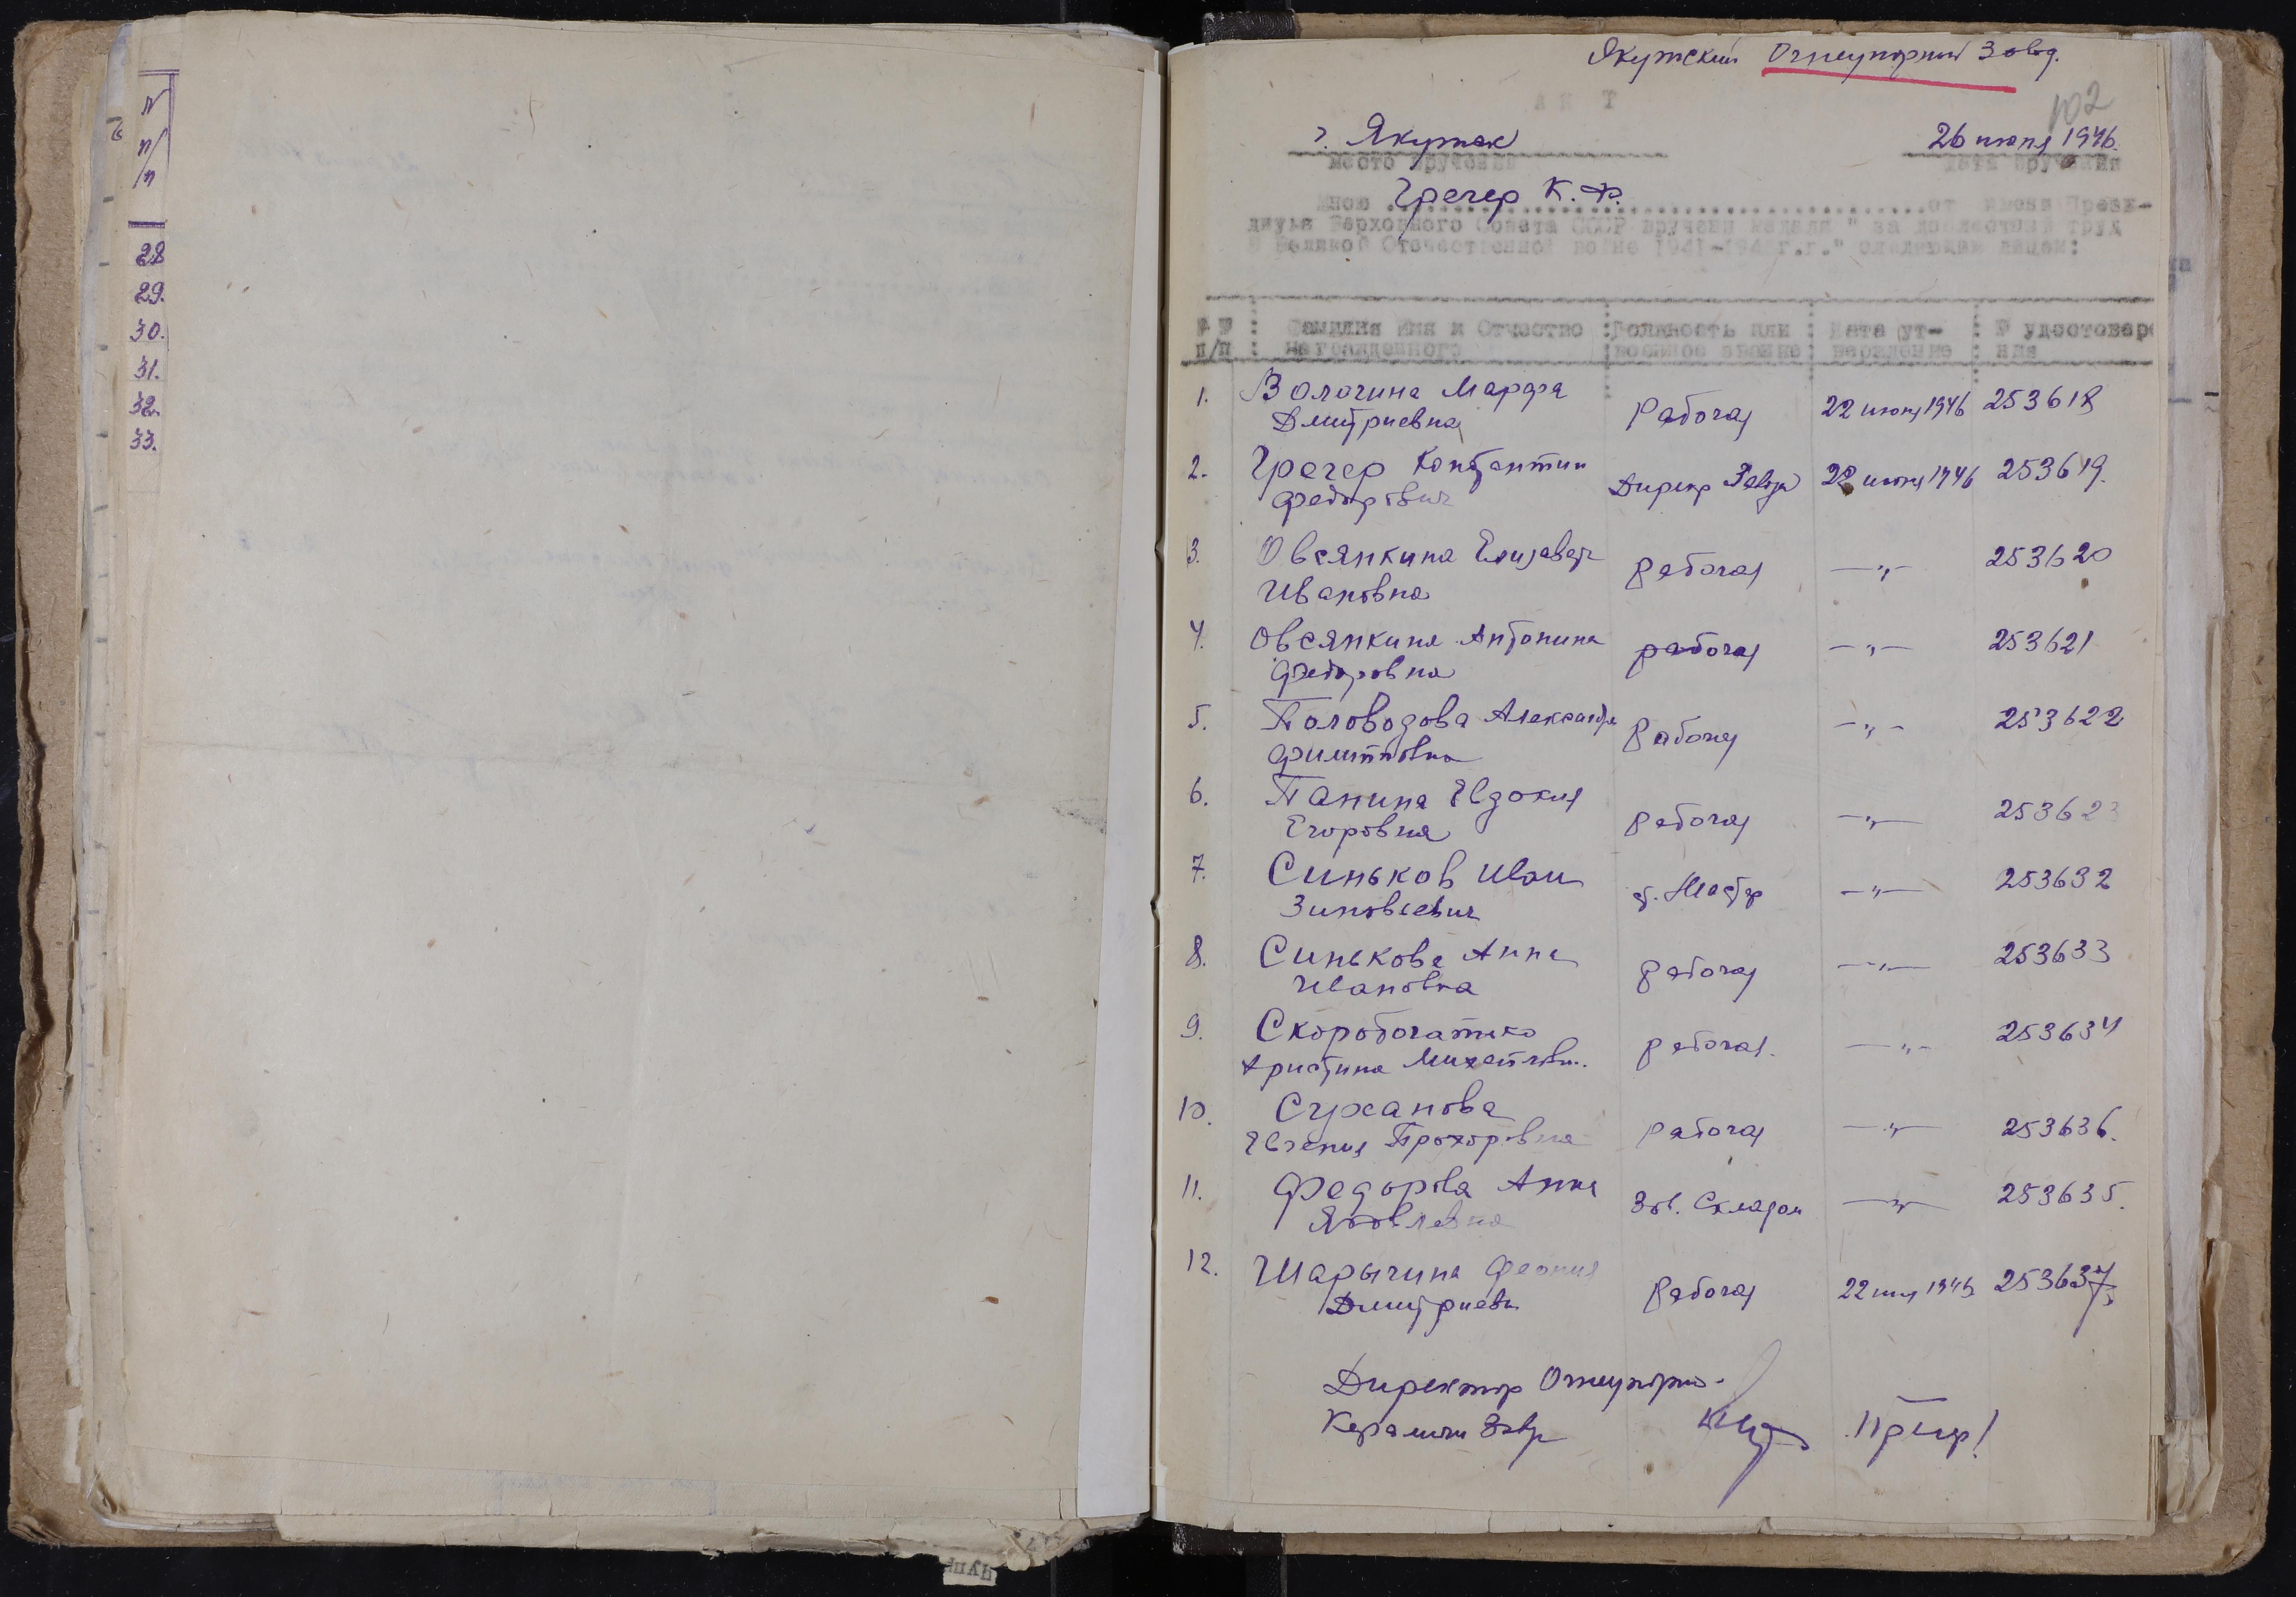 №
п/
п
28
29.
30.
31.
32.
33.
Якутский Огнеупорный Завод.
102
А К Т
г. Якутск 26 июня 1946.
место вручения дата вручения
Мною Грегер К. Ф. от имени Прези-
диума Верховного Совета СССР вручены медали "за доблестный труд
в Великой Отечественной войне 1941-1945 г.г." следующим лицам:
№ № : Фамилия Имя и Отчество : Должность или : Дата ут- : № удостовере
п/п : награжденного : воинское звание : верждение : ния
1. Вологина Марфа
Дмитриевна Рабочая 22 июня 1946 253618
2. Грегер Константин
Федорович Директ Завода 22 июня 1946 253619.
3. Овсянкина Елизавета
Ивановна рабочая —"— 253620
4. Овсянкина Антонина
Федоровна рабочая —"— 253621
5. Половодова Александра
Филипповна Рабочая —"— 253622
6. Панина Евдокия
Егоровна рабочая —"— 253623
7. Синьков Иван
Зиновьевич Мастер —"— 253632
8. Синькова Анна
Ивановна рабочая —"— 253633
9. Скоробогатько
Христина Михайловн. рабочая. —"— 253634
10. Суханова
Евгения Прохоровна рабочая —"— 253636.
11. Федорова Анна
Яковлевна Зав. Складом —"— 253635.
12. Шарыгина Феония
Дмитриевн Рабочая 22 июня 253637
Директор Огнеупорно-
Керамич Завод